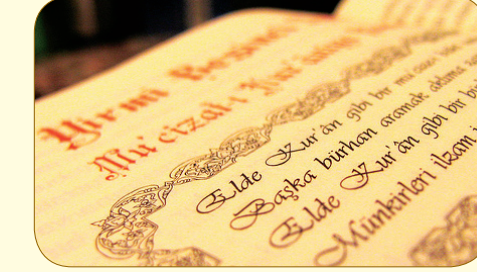 Yirmi Beşinci
Mu'cizat-ı Kur'aniye
Elde Kur'ân gibi bir mu'cize-i
Başka bürhan aramak aklıma
Elde Kur'ân gibi bir
Münkirleri ilzam